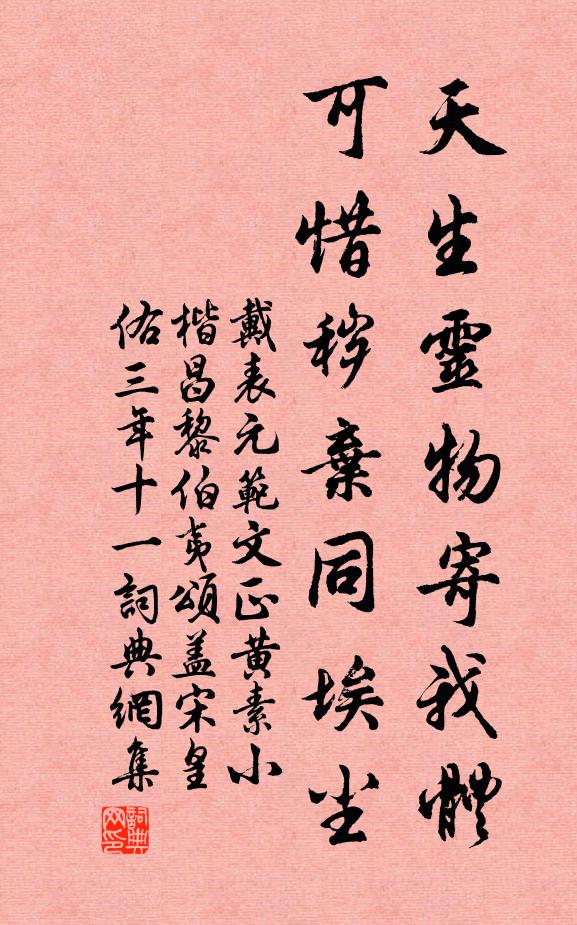 天生靈物寄我體
可惜穢棄同埃尘
戴表元範文正黄素小
楷昌黎伯夷頌盖宋皇
佑三年十一詞典網集
詞典
网印